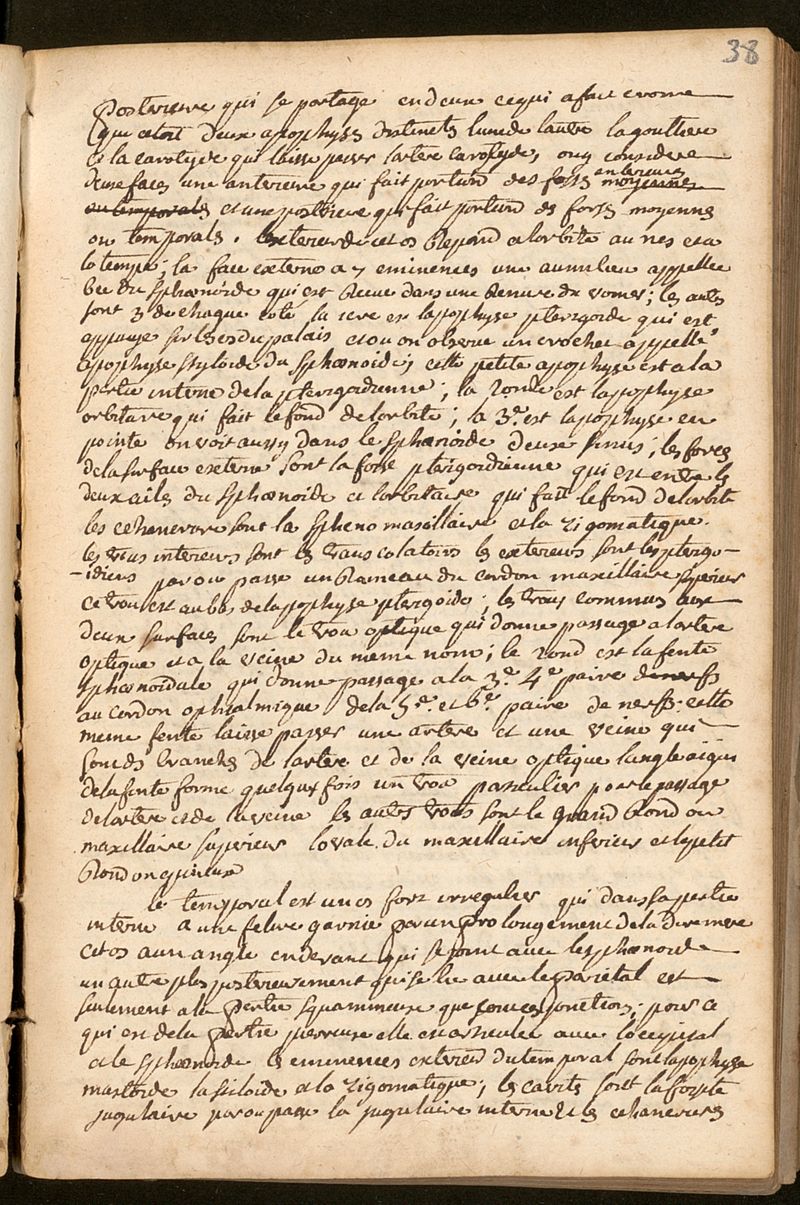 38
posterieure qui se partage en deux ce qui a fait croire
que cetoit deux apophyses distincts lune de lautre la goutiere
et la carotyde qui laisse passer lartere carotyde, on y considere
deux faces une anterieure qui fait portion des fosses anterieures moyennes
ou temporales et une posterieure qui fait portion des fosses moyennes
ou temporales. lexterieur de cet os repond a lorbite au nes et a
la tempe; la face externe a 7 eminences une au milieu appellee
bec du sphœnoide qui est recue dans une renure du vomer; les autres
sont 3 de chaque coté la 1ere est lapophyse pterigoide qui est
appuyée sur les os du palais et ou on observe un crochet appellé
apophyse styloide du sphœnoide; cette petite apophyse est a la
partie interne de la pterigoidienne; la 2onde est lapophyse
orbitaire qui fait le fond de lorbite; la 3e. est lapophyse en
pointe on voit aussy dans le sphœnoide deux sinus; les fosses
de la surface externe sont la fosse pterigoidienne qui est entre les
deux ailes du sphœnoide et lorbitaire qui fait le fond de lorbite
les echancrure sont la spheno maxillaire et la zigomatique.
les trous interieurs sont les trous colatoirs les exterieurs sont les pterigo-
-idiens par ou passe un rameau du cordon maxillaire superieur
ce trou est au bas de lapophyse pterigoide; les trous communs aux
deux surfaces sont le trou optique qui donne passage a lartere
optique et a la veine du meme nom; le 2ond est la fente
sphœnoidale qui donne passage a la 3e. 4e paire de nerfs
au cordon ophtalmique de la 5e. et 6e. paire de nerfs: cette
meme fente laisse passer une artere et une veine qui
sont des branches de lartere et de la veine optique langle aigu
de la fente forme quelque fois un trou particulier pour le passage
de lartere et de la veine les autres trous sont le grand rond ou
maxillaire superieur lovale du maxillaire inferieur et le petit
rond ou epineux
le temporal est un os fort irregulier qui dans sa partie
interne a une felure garnie par un prolongement de la dure mere
cet os a un angle en devant qui se joint avec le sphœnoide
un autre plus posterieurement qui se lie avec le parietal est
seulement a la partie squammeuse que sont ces jonctions; pour ce
qui est de la partie pierreuse elle est articulée avec loccipital
et le sphœnoide les eminences exterieu du temporal sont lapophyse
mastoide la stiloide et la zigomatique; les cavités sont la fossete
jugulaire par ou passe la jugulaire interne et les echancrures